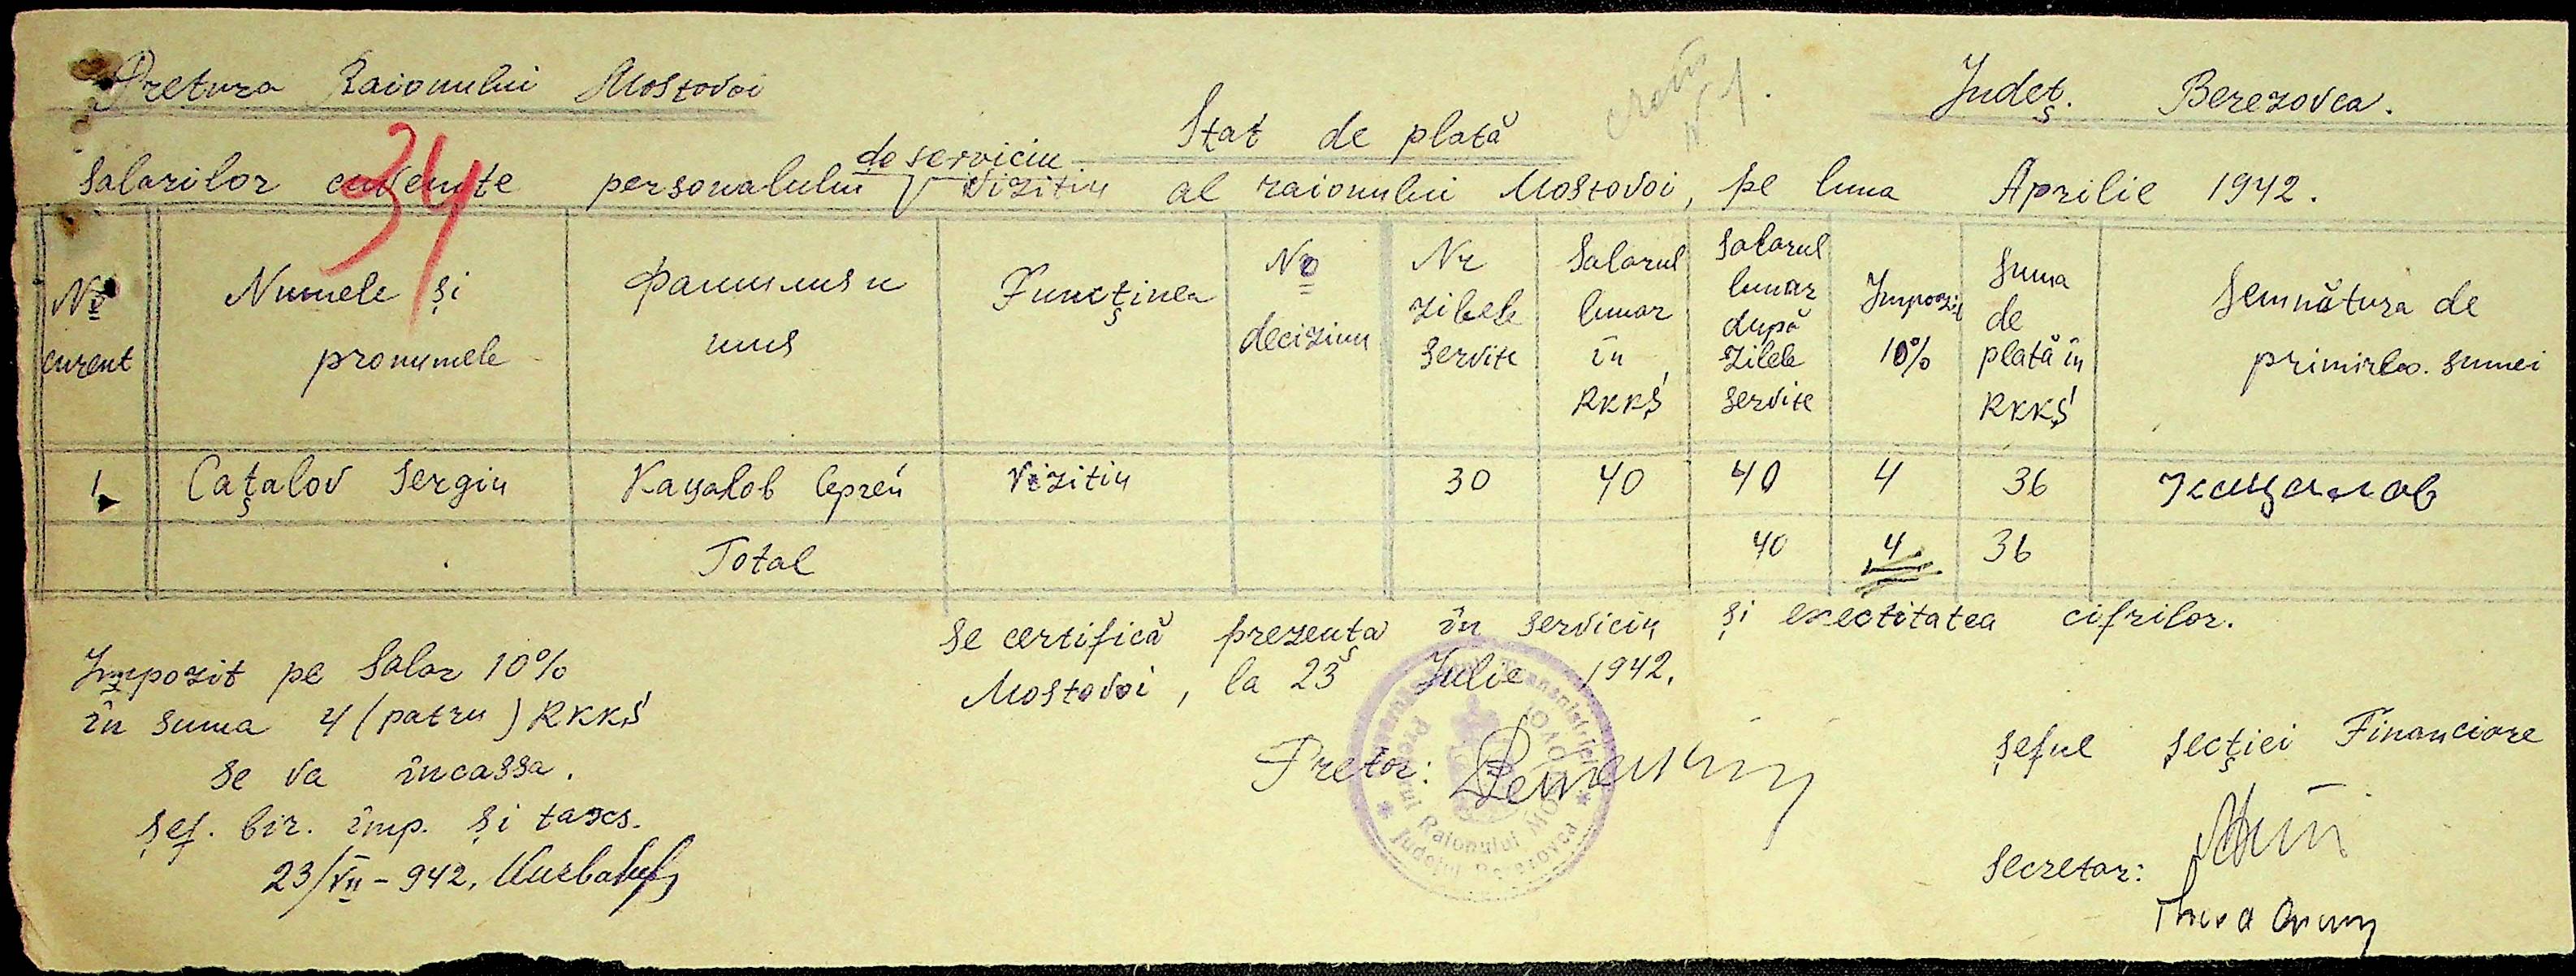 Pretura Raionului Mostovoi
Județ. Berezovca.
Stat de plată
de serviciu
Salarilor cuvenite personalului vizitiu al raionului Mostovoi, pe luna Aprilie 1942.
34
№ curent
Numele și pronumele
Фамилия и имя
Funcținea
№ deciziuu
Nr zilele servite
Salarul lunar în RKKȘ
Salarul lunar după zilele servite
Impozit 10%
Suma de plată în RKKȘ
Semnătura de primirea sumei
1 Cațalov Sergiu Кацалов Сергей Vizitiu 30 40 40 4 36 Кацалов
Total 40 4 36
Se certifică prezența în serviciu și exectitatea cifrilor.
Mostovoi, la 23 Iulie 1942.
Impozit pe Salar 10%
în suma 4 (patru) RKKȘ
se va încassa.
Șef. bir. imp. și taxes.
23/VII - 942.
Pretor:
Pretorul Raionului MOSTOVOI
Județul Berezovca
Șeful Secției Financiare
Secretar: